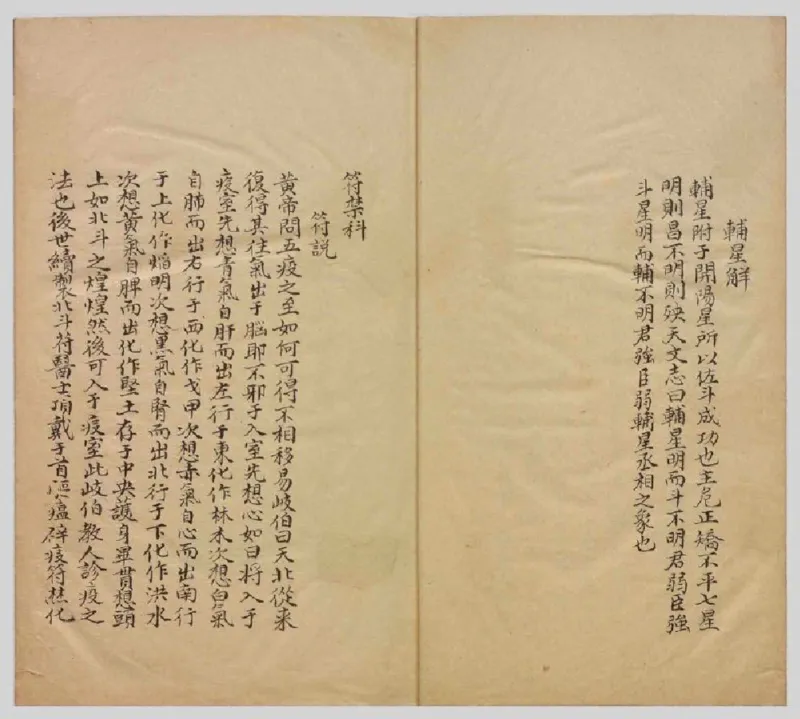 輔星解
輔星附于開陽星所以佐斗成功也主危正矯不平七星
明則昌不明則殃天文志曰輔星明而斗不明君弱臣強
斗星明而輔不明君強臣弱輔星丞相之象也
符禁科
符説
黃帝問五疫之至如何可得不相移易岐伯曰天北從來
復得其往氣出于腦耶不邪于入室先想心如日將入于
疫室先想青氣自肝而出左行于東化作林木次想白氣
自肺而出右行于西化作戈甲次想赤氣自心而出南行
于上化作焰明次想黒氣自腎而出北行于下化作洪水
次想黃氣自脾而出化作堅土存于中央護身畢貫想頭
上如北斗之煌煌然後可入于疫室此岐伯教人診疫之
法也後世續製北斗符醫士頂戴于首瘟辟疫符焚化